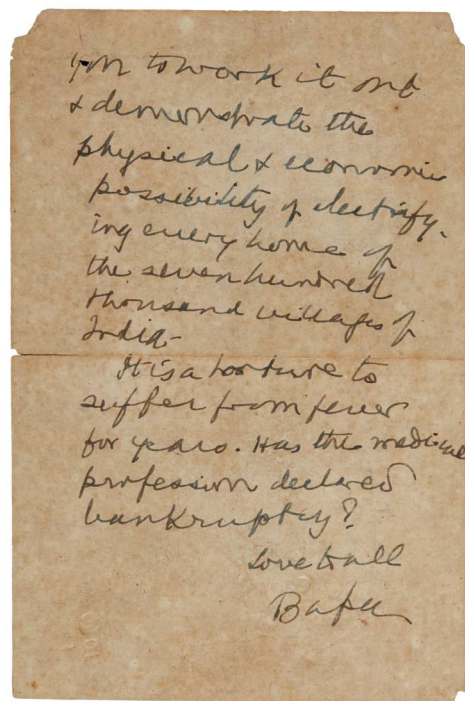 you to work it out
& demonstrate the
physical & economic
possibility of electrify-
ing every home of
the seven hundred
thousand villages of
India.
It is a torture to
suffer from fever
for years. Has the medical
profession declared
bankruptcy?
Love to all
Bapu